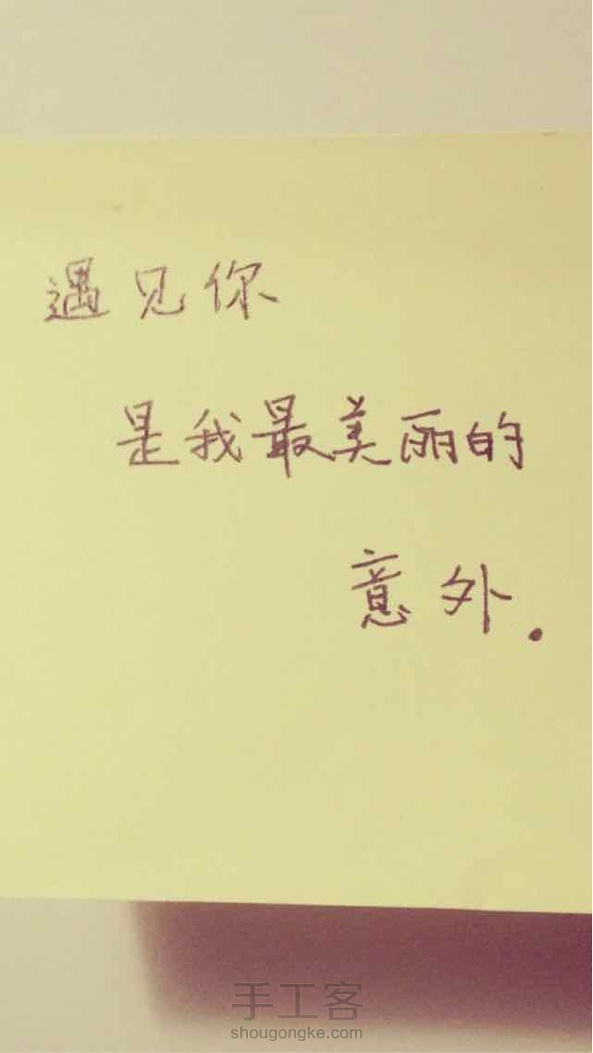 遇见你
是我最美丽的
意外.
手工客
shougongke.com